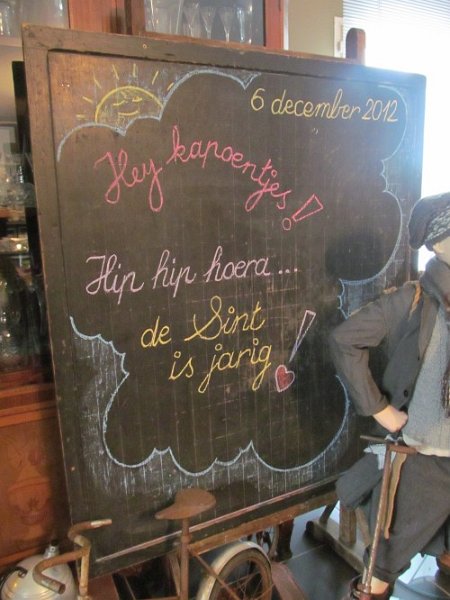 6 december 2012
Hey kapoentjes!
Hip hip hoera...
de Sint
is jarig!